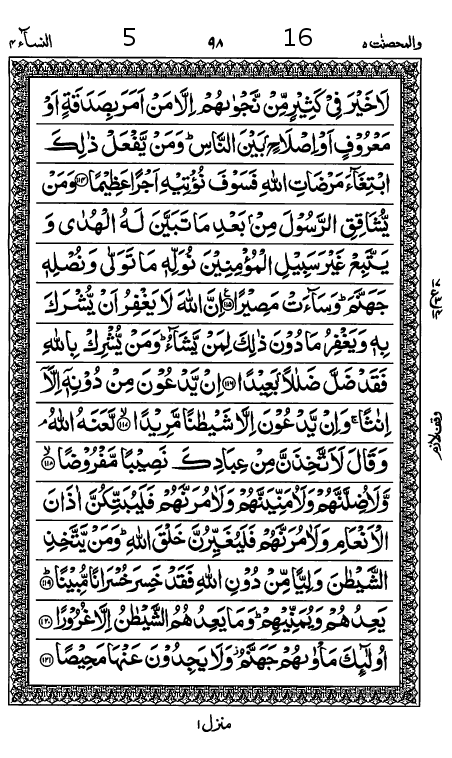 والمحصنت ٥ 16 ٩٨ 5 النسآء ٤
لَاخَيْرَ فِىْ كَثِيْرٍ مِّنْ نَّجْوٰىهُمْ اِلَّا مَنْ اَمَرَ بِصَدَقَةٍ اَوْ
مَعْرُوْفٍ اَوْ اِصْلَاحٍۭ بَيْنَ النَّاسِ ؕ وَمَنْ يَّفْعَلْ ذٰلِكَ
ابْتِغَآءَ مَرْضَاتِ اللّٰهِ فَسَوْفَ نُؤْتِيْهِ اَجْرًا عَظِيْمًا ﴿۱۱۴﴾ وَمَنْ
يُّشَاقِقِ الرَّسُوْلَ مِنْۢ بَعْدِ مَا تَبَيَّنَ لَهُ الْهُدٰى وَ
يَتَّبِعْ غَيْرَ سَبِيْلِ الْمُؤْمِنِيْنَ نُوَلِّهٖ مَا تَوَلّٰى وَنُصْلِهٖ
جَهَنَّمَ ؕ وَسَآءَتْ مَصِيْرًا ﴿۱۱۵﴾ اِنَّ اللّٰهَ لَا يَغْفِرُ اَنْ يُّشْرَكَ
بِهٖ وَيَغْفِرُ مَا دُوْنَ ذٰلِكَ لِمَنْ يَّشَآءُ ؕ وَمَنْ يُّشْرِكْ بِاللّٰهِ
فَقَدْ ضَلَّ ضَلٰلًاۢ بَعِيْدًا ﴿۱۱۶﴾ اِنْ يَّدْعُوْنَ مِنْ دُوْنِهٖۤ اِلَّاۤ
اِنٰثًا ۚ وَاِنْ يَّدْعُوْنَ اِلَّا شَيْطٰنًا مَّرِيْدًا ﴿۱۱۷﴾ لَّعَنَهُ اللّٰهُ ۘ
وَقَالَ لَاَتَّخِذَنَّ مِنْ عِبَادِكَ نَصِيْبًا مَّفْرُوْضًا ﴿۱۱۸﴾
وَّلَاُضِلَّنَّهُمْ وَلَاُمَنِّيَنَّهُمْ وَلَاٰمُرَنَّهُمْ فَلَيُبَتِّكُنَّ اٰذَانَ
الْاَنْعَامِ وَلَاٰمُرَنَّهُمْ فَلَيُغَيِّرُنَّ خَلْقَ اللّٰهِ ؕ وَمَنْ يَّتَّخِذِ
الشَّيْطٰنَ وَلِيًّا مِّنْ دُوْنِ اللّٰهِ فَقَدْ خَسِرَ خُسْرَانًا مُّبِيْنًا ﴿۱۱۹﴾
يَعِدُهُمْ وَيُمَنِّيْهِمْ ؕ وَمَا يَعِدُهُمُ الشَّيْطٰنُ اِلَّا غُرُوْرًا ﴿۱۲۰﴾
اُولٰٓئِكَ مَاْوٰىهُمْ جَهَنَّمُ ؗ وَلَا يَجِدُوْنَ عَنْهَا مَحِيْصًا ﴿۱۲۱﴾
وقف لازم
منزل ١